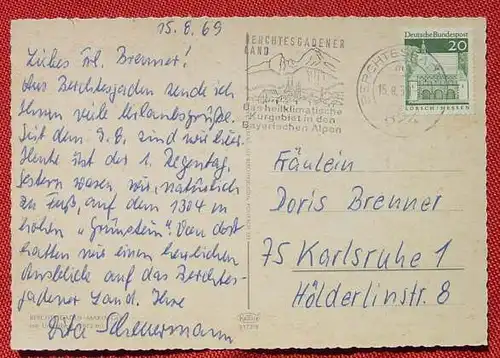 15.8.69
Liebes Frl. Brenner!
Aus Berchtesgaden sende ich
Ihnen viele Urlaubsgrüße.
Seit dem 9.8. sind wir hier.
Heute ist der 1. Regentag.
Gestern waren wir, natürlich
zu Fuß, auf dem 1304 m
hohen "Grünstein". Von dort
hatten wir einen herrlichen
Ausblick auf das Berchtes-
gadener Land. Ihre
Scheuermann
BERCHTESGADENER
LAND
Das heilklimatische
Kurgebiet in den
Bayerischen Alpen
BERCHTESGADEN
Deutsche Bundespost
20
LORSCH/HESSEN
Fräulein
Doris Brenner
75 Karlsruhe 1
Hölderlinstr. 8